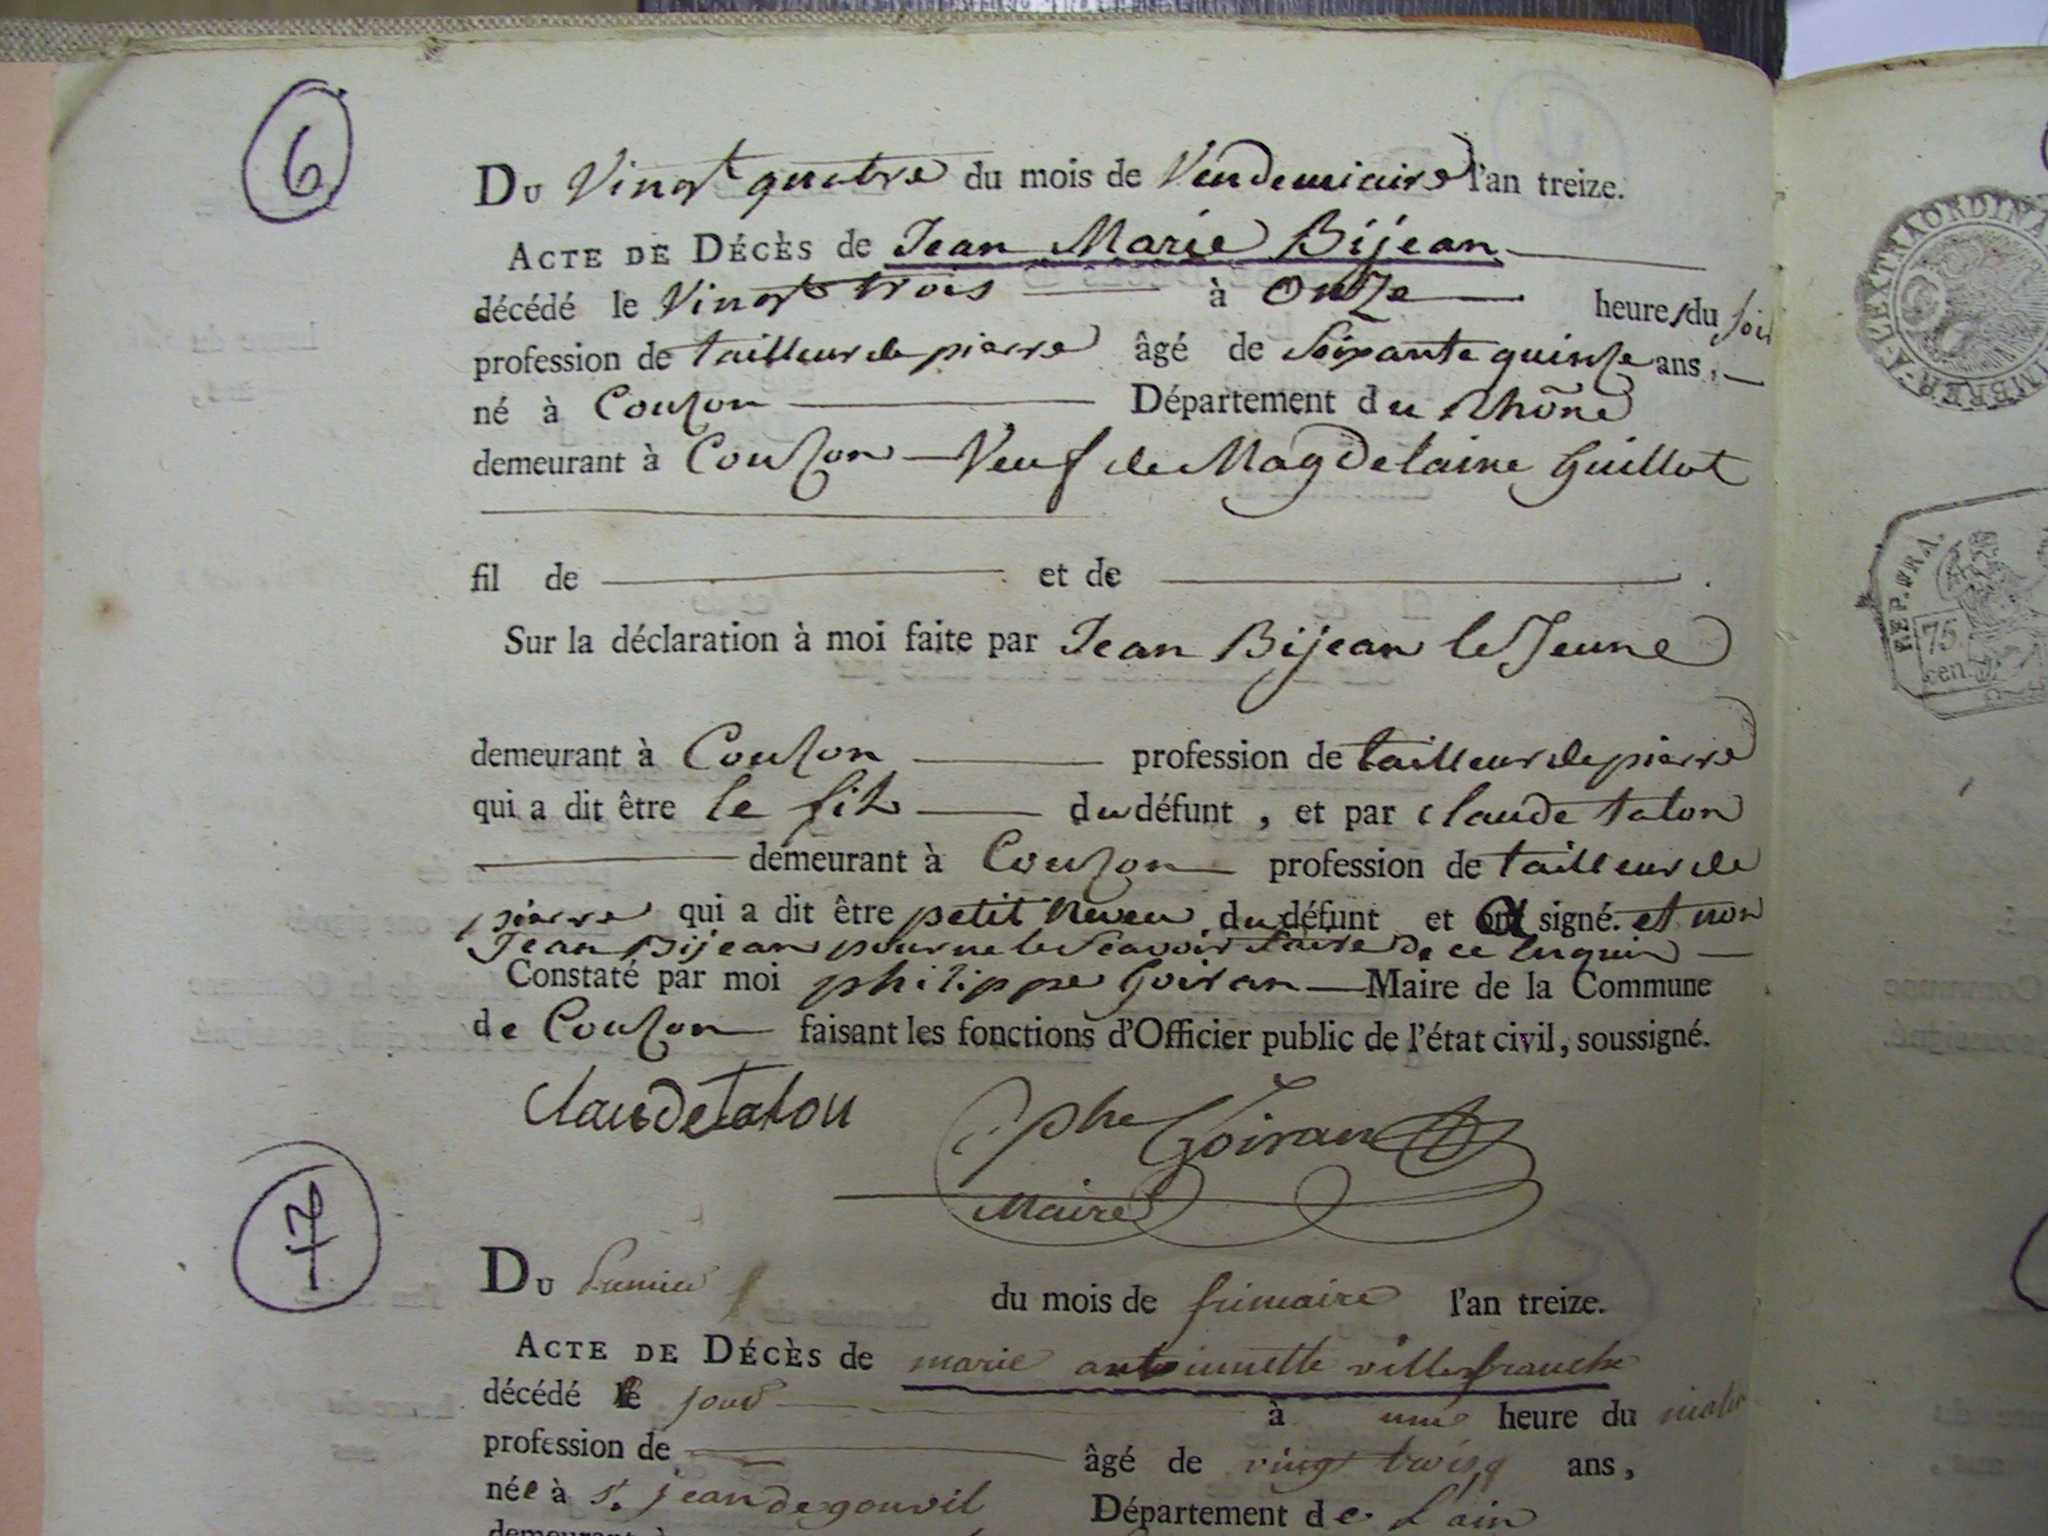 6
DU Vingt quatre du mois de Vendemiaire l'an treize.
ACTE DE DÉCÈS de Jean Marie Bijean
décédé le Vingt trois à Onze heures du soir
profession de tailleur de pierre âgé de Soixante quinze ans,
né à Couzon Département du Rhône
demeurant à Couzon Veuf de Magdelaine Guillot
fil de et de .
Sur la déclaration à moi faite par Jean Bijean le Jeune
demeurant à Couzon profession de tailleur de pierre
qui a dit être le fils du défunt, et par Claude talon
demeurant à Couzon profession de tailleur de
pierre qui a dit être petit Neveu du défunt et a signé. et non
Jean Bijean pour ne le Scavoir faire de ce Enquis
Constaté par moi philippe Goiran Maire de la Commune
de Couzon faisant les fonctions d'Officier public de l'état civil, soussigné.
Claude talon phe Goiran
Maire
7
DU Premier du mois de frimaire l'an treize.
ACTE DE DÉCÈS de marie antoinnette villefranche
décédé le jour à une heure du matin
profession de âgé de vingt trois ans,
née à St. jean de gouvil Département de L'ain
demeurant à
A L'EXTRAORDINA
TIMBRER
REP. FRA.
75
cen.